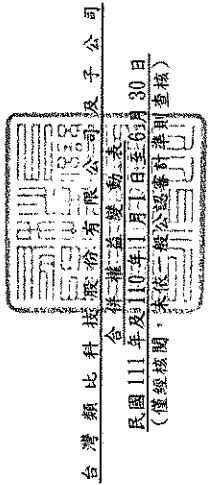 台灣類比科技股份有限公司及子公司
合併權益變動表
民國111年及110年1月1日至6月30日
(僅經核閱，未依一般公認審計準則查核)